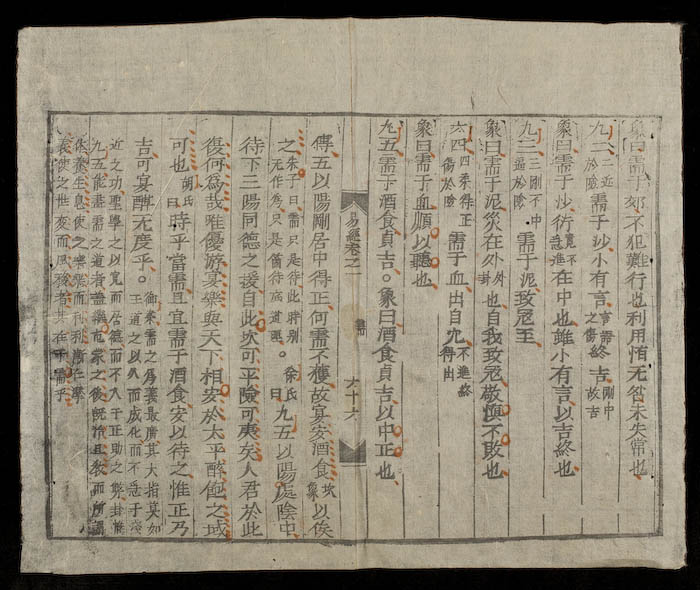 象曰需于郊不犯難行也利用恒无咎未失常也
九二 二近於險 需于沙小有言 言語之傷 終吉 剛中故吉
象曰需于沙衍 寬不急進 在中也雖小有言以吉終也
九三 三剛不中逼於險 需于泥致寇至
象曰需于泥災在外 外卦 也自我致寇敬慎不敗也
六四 四柔得正傷於險 需于血出自穴 不進終得出
象曰需于血順以聽也
九五需于酒食貞吉。象曰酒食貞吉以中正也
易經卷之一 需 六十六
傳五以陽剛居中得正何需不獲故宴安酒食 坎象 以俟
之 朱子曰需只是待此時別无作為只是待 徐氏曰 九五以陽處陰中
待下三陽同德之援自此次可平險可夷矣人君於此
復何為哉唯優游宴樂與天下相安於太平醉飽之域
可也 胡氏曰 時乎當需且宜需于酒食安以待之惟正乃
吉可宴酣无度乎。 需之為義最廣其大指莫如
近之功聖學之以寬而居德而不入于正助之弊
王道之以久而成化而不
九五能盡需之道者